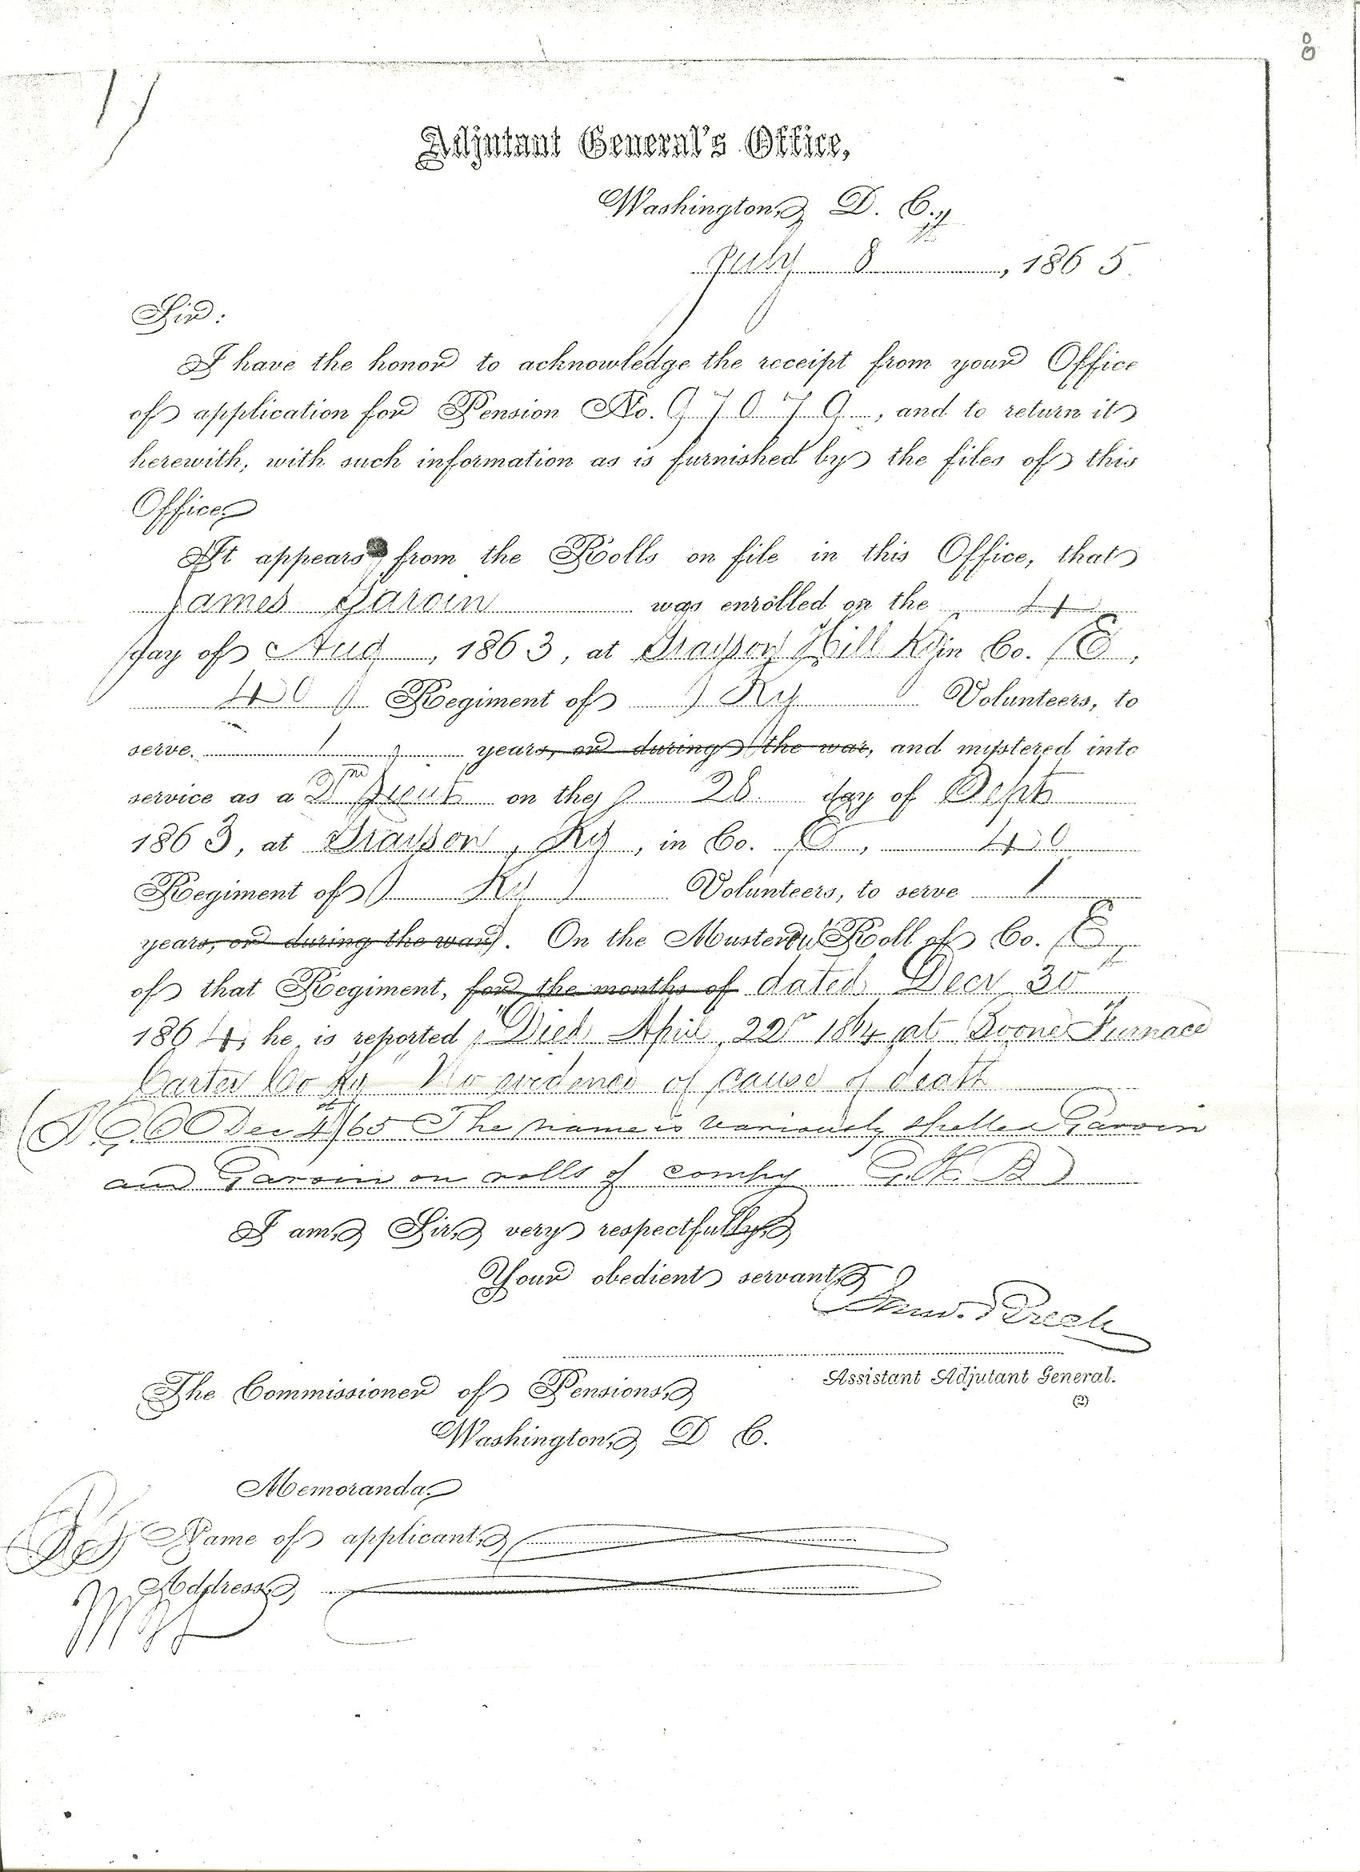 Adjutant General's Office,
Washington, D. C.,
July 8th, 1865.
Sir:
I have the honor to acknowledge the receipt from your Office
of application for Pension No. 97079, and to return it
herewith, with such information as is furnished by the files of this
Office.
It appears from the Rolls on file in this Office, that
James Garvin was enrolled on the 4
day of Aug, 1863, at Grayson Hill Ky in Co. E,
40 Regiment of Ky Volunteers, to
serve 1 years, or during the war, and mustered into
service as a 2nd Lieut on the 28 day of Sept
1863, at Grayson, Ky, in Co. E, 40
Regiment of Ky Volunteers, to serve 1
years, or during the war. On the Muster Roll of Co. E,
of that Regiment, for the months of dated Decr 30th
1864, he is reported "Died April 22nd 1864 at Boone Furnace
Carter Co Ky" No evidence of cause of death
Dec 4/65 The name is variously spelled Garvin
and on rolls of compy G. H. B)
I am, Sir, very respectfully,
Your obedient servant,
Assistant Adjutant General.
(2)
The Commissioner of Pensions,
Washington, D C.
Memoranda.
Name of applicant,
Address,